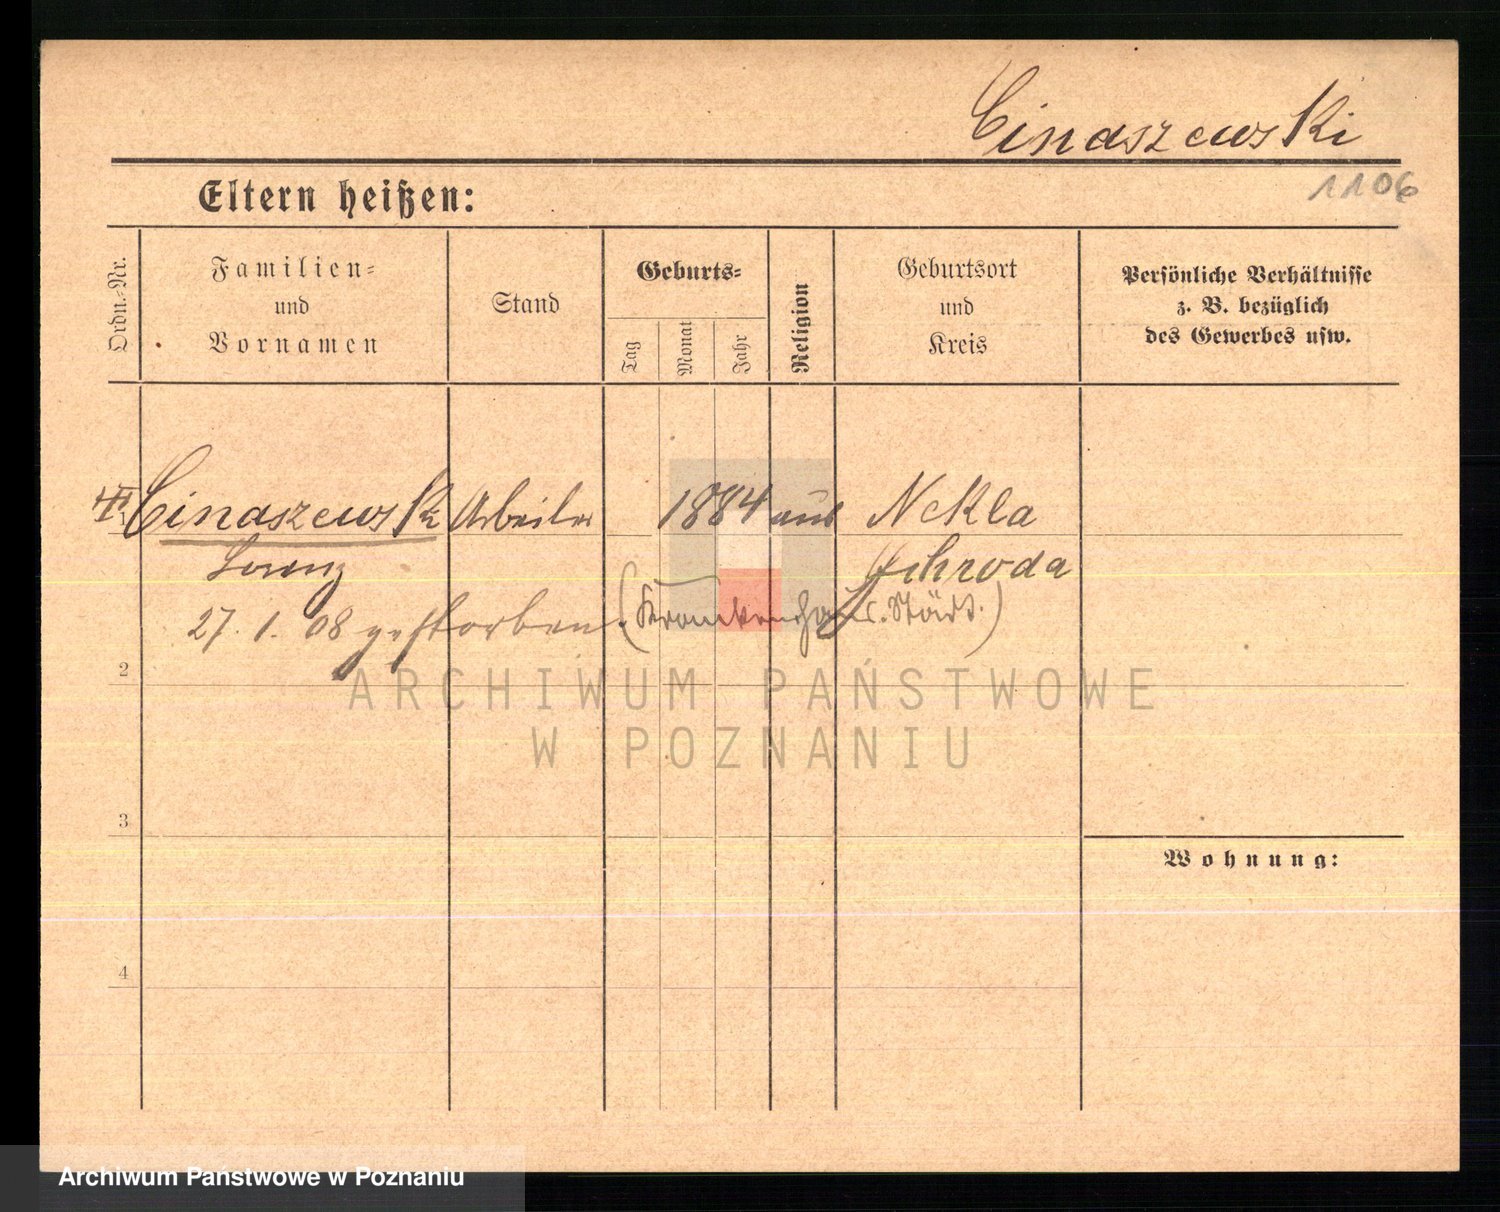 Cinaszewski
1106
Eltern heißen:
Ordn.-Nr.
Familien-
und
Vornamen
Stand
Geburts-
Tag
Monat
Jahr
Religion
Geburtsort
und
Kreis
Persönliche Verhältnisse
z. B. bezüglich
des Gewerbes usw.
1 Cinaszewski Arbeiter 1884 aus Nekla
Lorenz Schroda
27. 1. 08 gestorben. (Krankenhaus. Städt.)
2
ARCHIWUM PAŃSTWOWE
W POZNANIU
3
Wohnung:
4
Archiwum Państwowe w Poznaniu